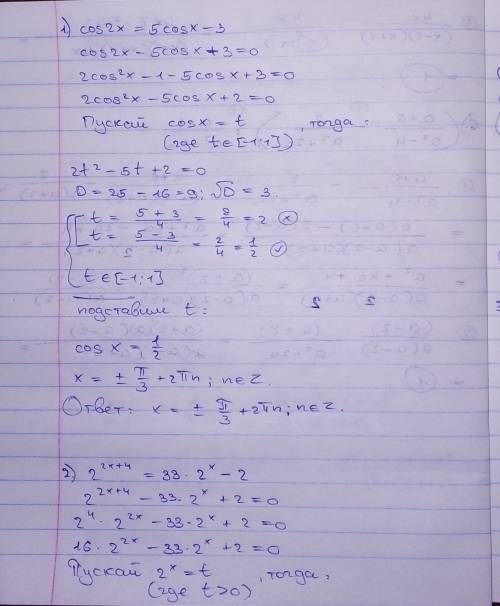 1) cos2x = 5cosx − 3
cos2x − 5cosx + 3 = 0
2cos²x − 1 − 5cosx + 3 = 0
2cos²x − 5cosx + 2 = 0
Пускай cosx = t , тогда:
(где t∈[-1;1])
2t² − 5t + 2 = 0
D = 25 − 16 = 9; √D = 3.
t = (5 + 3)/4 = 8/4 = 2 ⊗
t = (5 − 3)/4 = 2/4 = 1/2 ✓
t∈[-1;1]
подставим t:
cos x = 1/2
x = ± π/3 + 2πn; n∈Z.
Ответ: x = ± π/3 + 2πn; n∈Z.
2) 2^(2x+4) = 33 · 2^x − 2
2^(2x+4) − 33 · 2^x + 2 = 0
2^4 · 2^(2x) − 33 · 2^x + 2 = 0
16 · 2^(2x) − 33 · 2^x + 2 = 0
Пускай 2^x = t , тогда:
(где t>0)